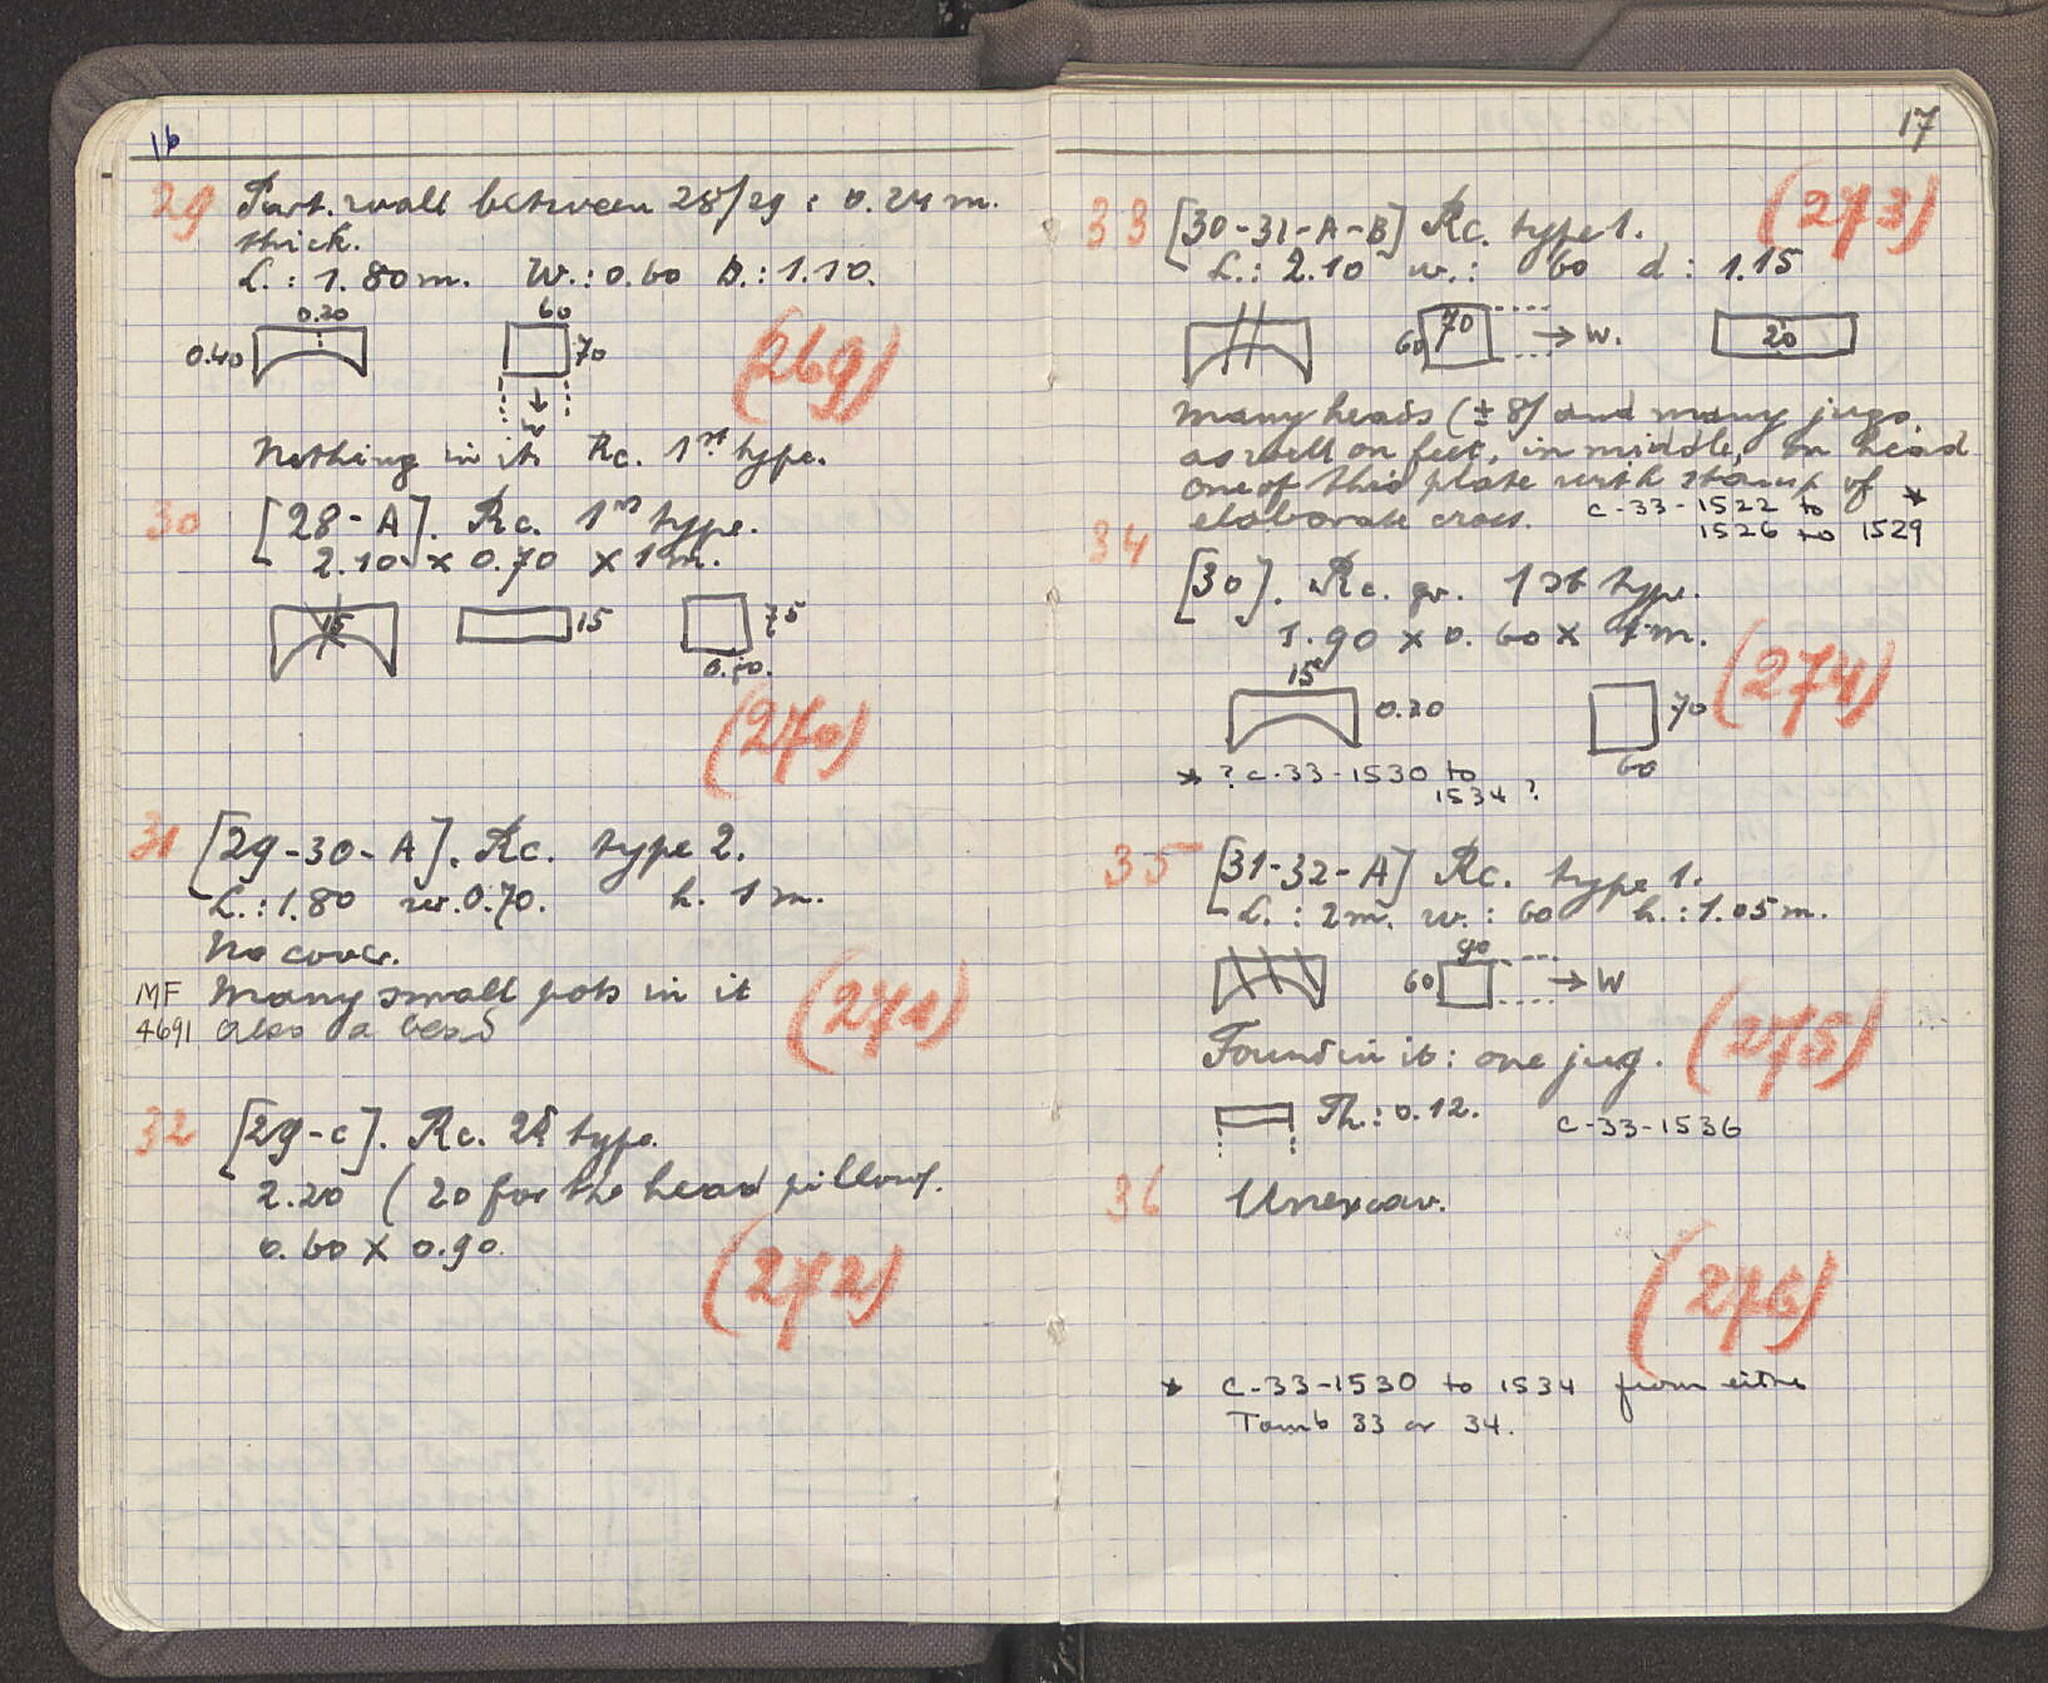 16
29 Part. wall between 28/29 : 0.24 m.
thick.
L. : 1.80 m. W. : 0.60 D. : 1.10.
0.20
0.40
60
70
(269)
Nothing in it. Rc. 1st type.
30 [28-A]. Rc. 1st type.
2.10 x 0.70 x 1 m.
15
15
75
0.70.
(270)
31 [29-30-A]. Rc. type 2.
L. : 1.80 w. 0.70. h. 1 m.
No cover.
MF Many small pots in it
4691 also a bead
(271)
32 [29-c]. Rc. 2d type.
2.20 (20 for the head pillow).
0.60 x 0.90.
(272)
17
33 [30-31-A-B] Rc. type 1.
(273)
L. : 2.10 w. : 60 d : 1.15
70
60
→ W.
20
Many heads (± 8) and many jugs,
as well on feet, in middle, on head
one of this plate with stamp of
elaborate cross. c-33-1522 to *
1526 to 1529
34
[30]. Rc. gr. 1st type.
1.90 x 0.60 x 1 m.
(274)
15
0.20
70
60
* ? c-33-1530 to
1534 ?
35 [31-32-A] Rc. type 1.
L. : 2 m. w. : 60 h. : 1.05 m.
90
60
→ W
Found in it : one jug.
(275)
Th. : 0.12.
c-33-1536
36 Unexcav.
(276)
* c-33-1530 to 1534 from either
Tomb 33 or 34.